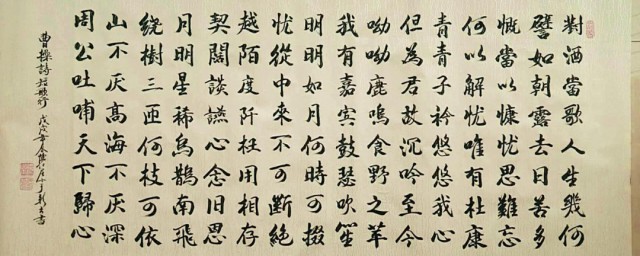 對酒當歌人生幾何
譬如朝露去日苦多
慨當以慷忧思難忘
何以解忧唯有杜康
青青子衿悠悠我心
但為君故沉吟至今
呦呦鹿鳴食野之苹
我有嘉宾鼓瑟吹笙
明明如月何時可掇
忧從中來不可断絕
越陌度阡枉用相存
契闊談讌心念旧恩
月明星稀烏鵲南飛
繞樹三匝何枝可依
山不厌高海不厌深
周公吐哺天下歸心
曹操詩短歌行 戊戌年